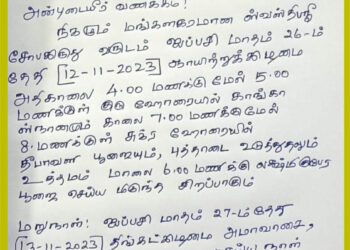 அன்புடையீர் வணக்கம்!
நிகழும் மங்களகரமான ஸ்வஸ்திஸ்ரீ
சோபகிருது வருடம் ஐப்பசி மாதம் 26-ம்
தேதி 12-11-2023 ஞாயிற்றுக்கிழமை
அதிகாலை 4.00 மணிக்கு மேல் 5.00
மணிக்குள் குரு ஹோரையில் கங்கா
ஸ்நானமும் காலை 7.00 மணிக்குமேல்
8. மணிக்குள் சுக்ர ஹோரையில்
தீபாவளி பூஜையும், புத்தாடை உடுத்துதலும்
உத்தமம் மாலை 6.00 மணிக்கு லக்ஷ்மிகுபேர
பூஜை செய்ய மிகுந்த சிறப்பாகும்
மறுநாள்! ஐப்பசி மாதம் 27-ம்தேதி
13-11-2023 திங்கட்கிழமை அமாவாசை,